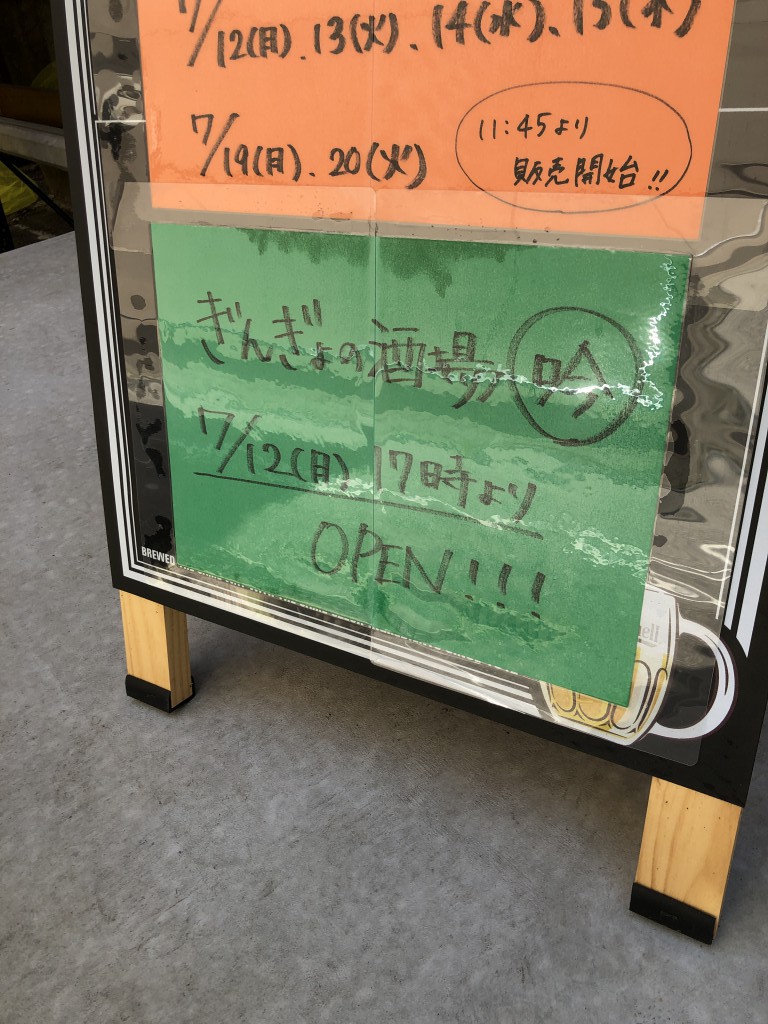 7/12(月)、13(火)、14(水)、15(木)
7/19(月)、20(火)
11:45より
販売開始!!
ぎんぎょの酒場 吟
7/12(月) 17時より
OPEN!!!
BREWED